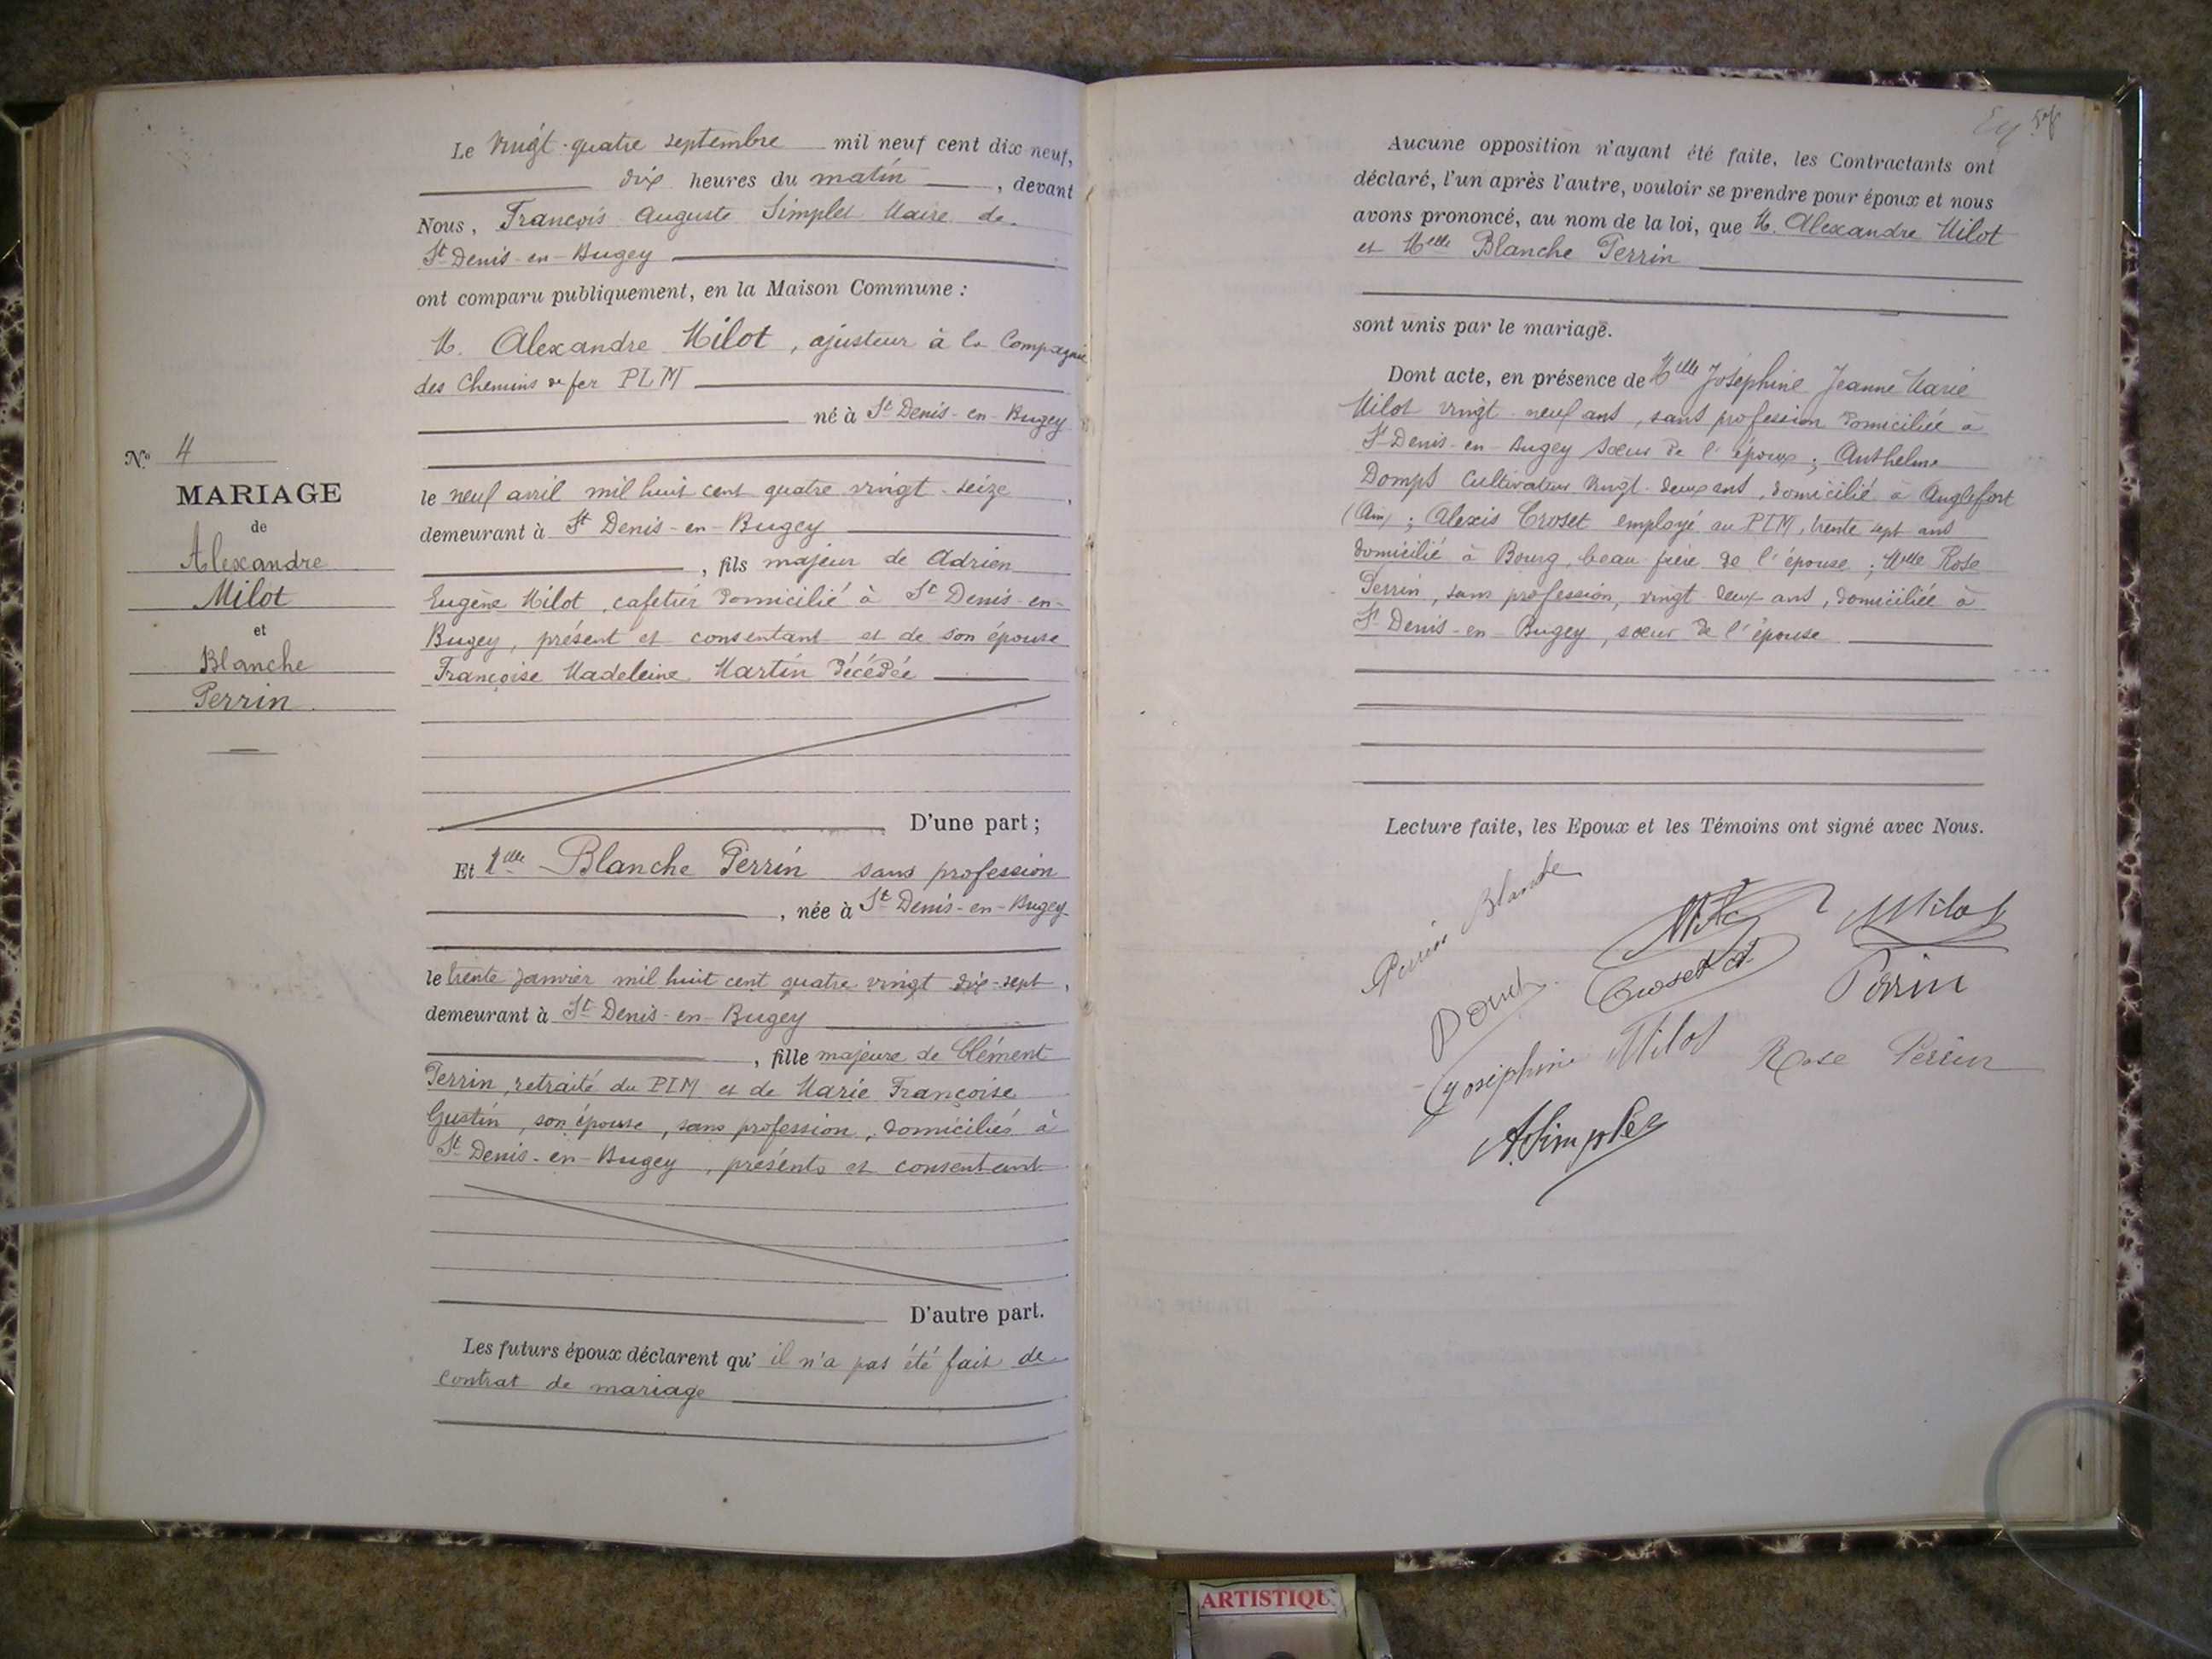 Le vingt-quatre septembre mil neuf cent dix neuf,
dix heures du matin, devant
Nous, François Auguste Simplet Maire de
St Denis-en-Bugey
ont comparu publiquement, en la Maison Commune :
M. Alexandre Milot, ajusteur à la Compagnie
des Chemins de fer PLM
né à St Denis-en-Bugey
le neuf avril mil huit cent quatre vingt-seize,
demeurant à St Denis-en-Bugey
, fils majeur de Adrien
Eugène Milot, cafetier domicilié à St Denis-en-
Bugey, présent et consentant et de son épouse
Françoise Madeleine Martin décédée
D'une part ;
No 4
MARIAGE
de
Alexandre
Milot
et
Blanche
Perrin
Et Melle Blanche Perrin sans profession
, née à St Denis-en-Bugey
le trente janvier mil huit cent quatre vingt dix-sept,
demeurant à St Denis-en-Bugey
, fille majeure de Clément
Perrin, retraité du PLM et de Marie Françoise
Gustin, son épouse, sans profession, domiciliés à
St Denis-en-Bugey, présents et consentant
D'autre part.
Les futurs époux déclarent qu' il n'a pas été fait de
contrat de mariage
Aucune opposition n'ayant été faite, les Contractants ont
déclaré, l'un après l'autre, vouloir se prendre pour époux et nous
avons prononcé, au nom de la loi, que M. Alexandre Milot
et Melle Blanche Perrin
sont unis par le mariage.
Dont acte, en présence de Melle Joséphine Jeanne Marie
Milot vingt-neuf ans, sans profession domiciliée à
St Denis-en-Bugey sœur de l'époux ; Anthelme
Domps Cultivateur vingt-deux ans, domicilié à Anglefort
(Ain) ; Alexis Croset employé au PLM, trente sept ans
domicilié à Bourg, beau frère de l'épouse ; Melle Rose
Perrin, sans profession, vingt deux ans, domiciliée à
St Denis-en-Bugey, sœur de l'épouse
Lecture faite, les Epoux et les Témoins ont signé avec Nous.
Perrin Blanche
Milot
Croset A
Perrin
Joséphine Milot
Rose Perrin
A Simplet
ARTISTIQU